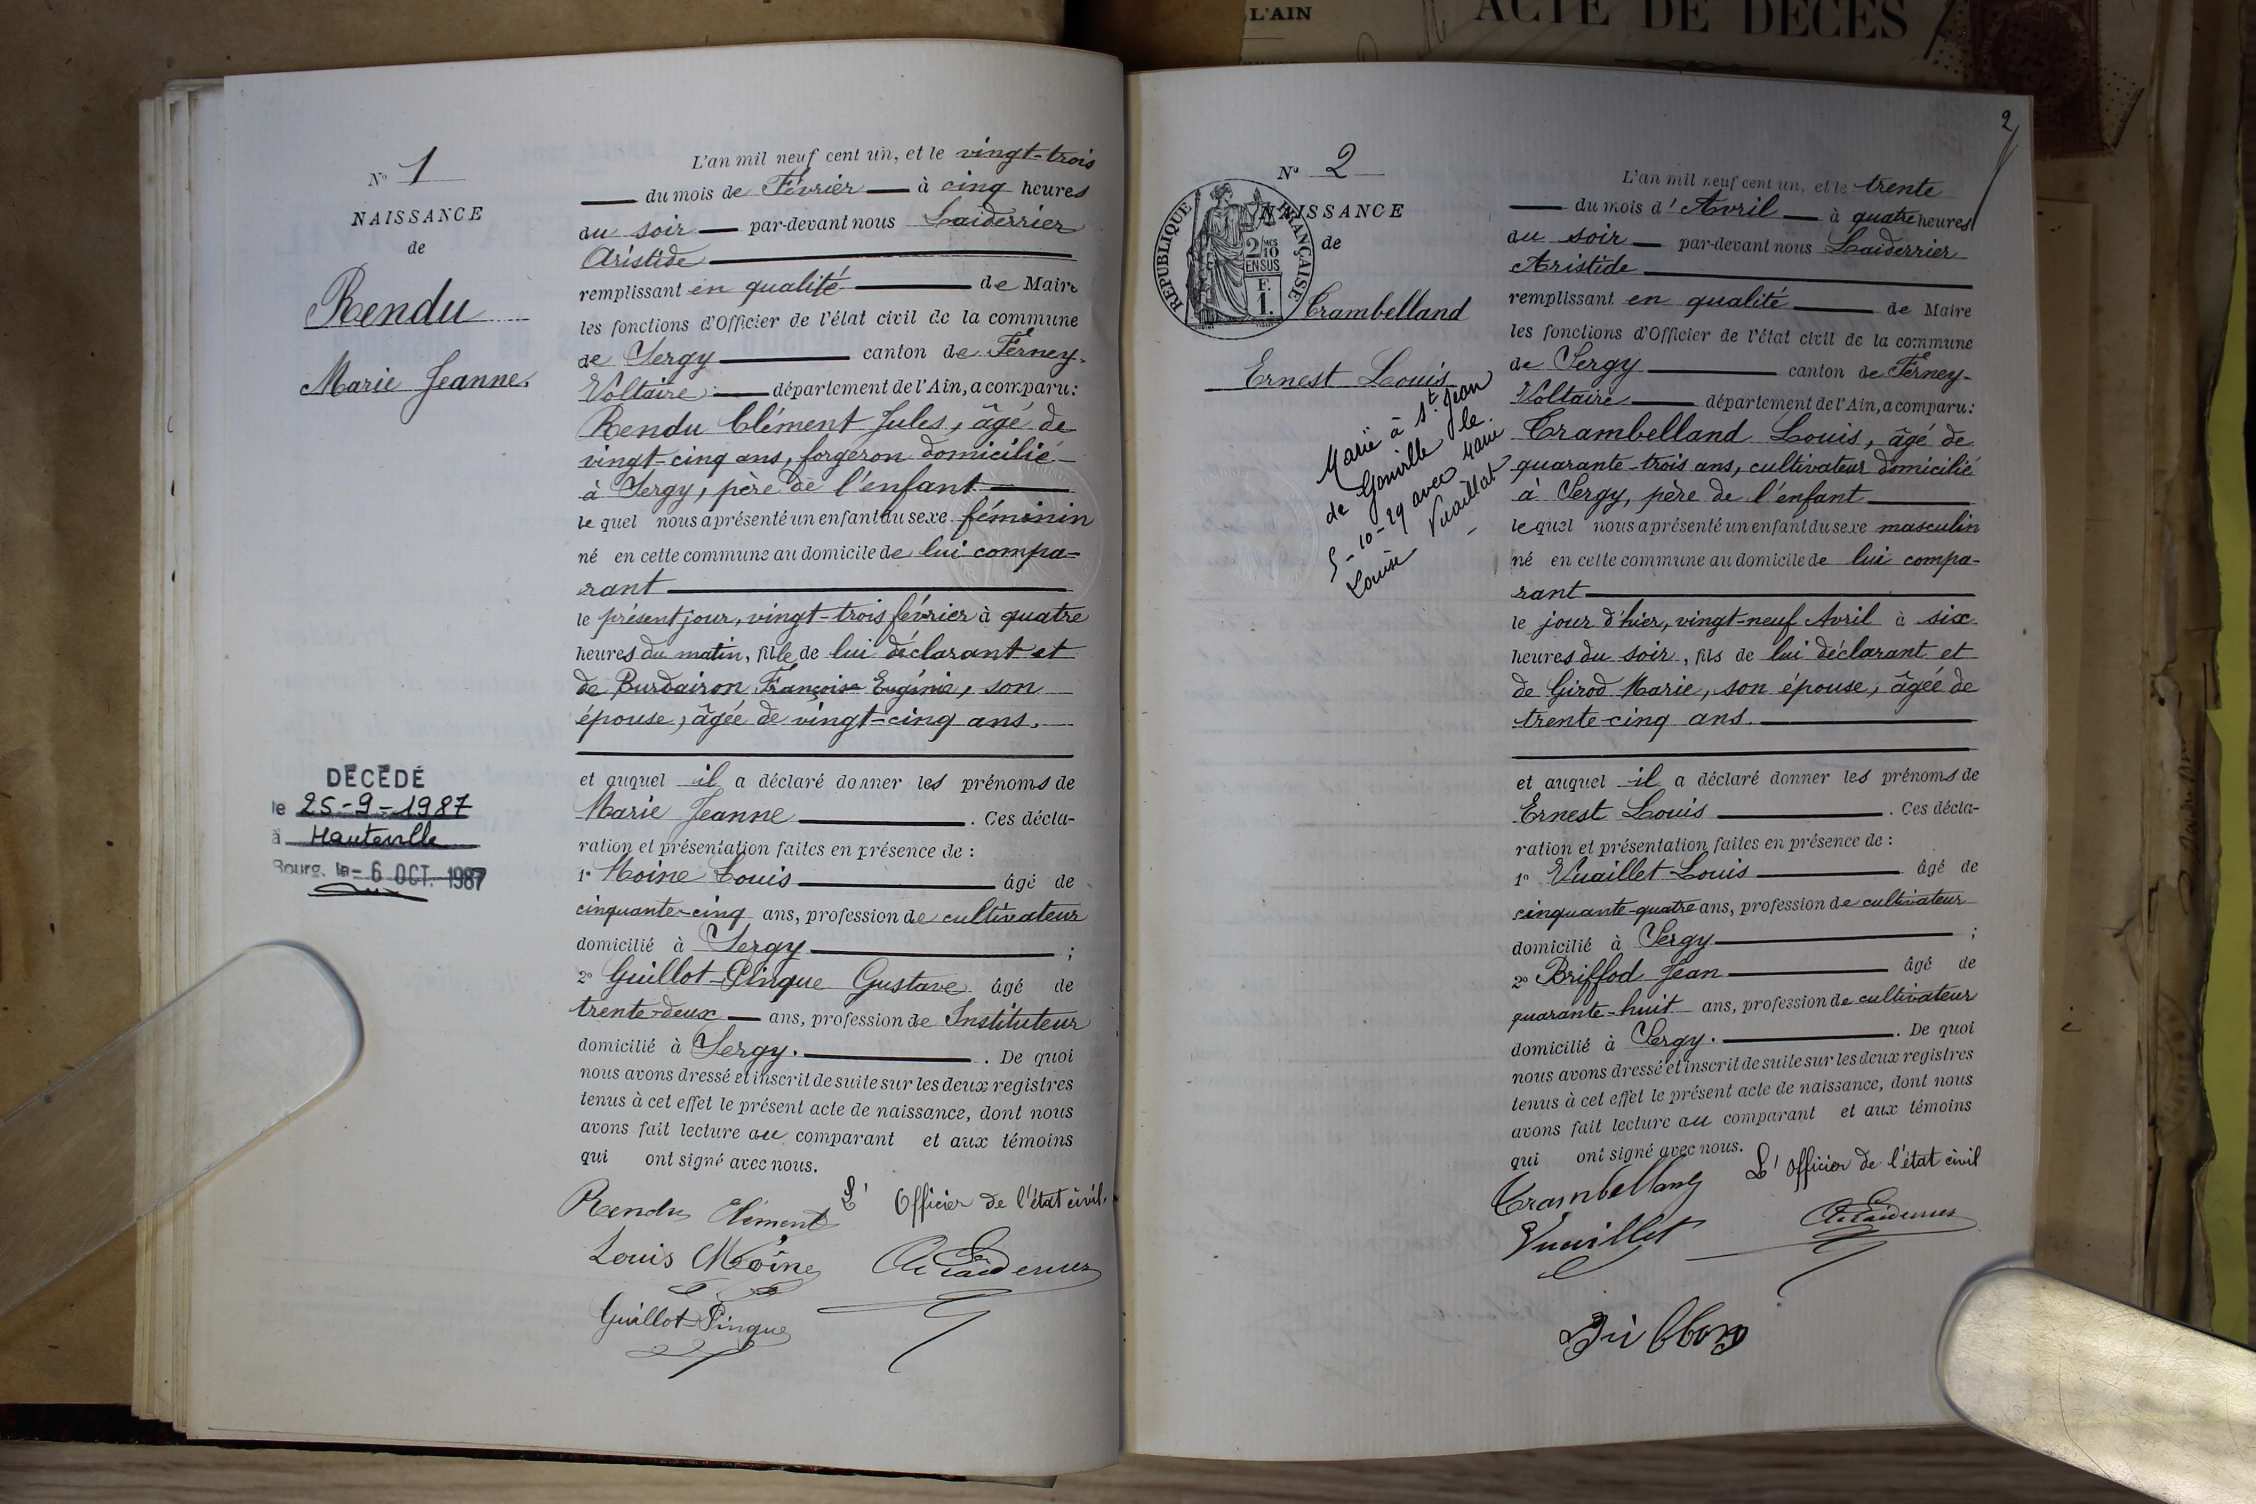 L'AIN
ACTE DE DÉCÈS
N° 1
NAISSANCE
de
Rendu
Marie Jeanne.
DÉCÉDÉ
le 25-9-1987
à Hauteville
Bourg, le - 6 OCT. 1987
L'an mil neuf cent un, et le vingt-trois
du mois de Février à cinq heures
du soir par-devant nous Laiderrier
Aristide
remplissant en qualité de Maire
les fonctions d'Officier de l'état civil de la commune
de Sergy canton de Ferney-
Voltaire département de l'Ain, a comparu:
Rendu Clément Jules, âgé de
vingt-cinq ans, forgeron domicilié
à Sergy, père de l'enfant
lequel nous a présenté un enfant du sexe féminin
né en cette commune au domicile de lui compa-
rant
le présent jour, vingt-trois février à quatre
heures du matin, fille de lui déclarant et
de Burdairon Françoise Eugénie, son
épouse, âgée de vingt-cinq ans.
et auquel il a déclaré donner les prénoms de
Marie Jeanne . Ces décla-
ration et présentation faites en présence de :
1° Moine Louis âgé de
cinquante-cinq ans, profession de cultivateur
domicilié à Sergy ;
2° Guillot-Pingue Gustave âgé de
trente-deux ans, profession de Instituteur
domicilié à Sergy. . De quoi
nous avons dressé et inscrit de suite sur les deux registres
tenus à cet effet le présent acte de naissance, dont nous
avons fait lecture au comparant et aux témoins
qui ont signé avec nous.
Rendu Clément L'Officier de l'état civil.
Louis Moine
Guillot-Pingue
2
N° 2
NAISSANCE
de
RÉPUBLIQUE FRANÇAISE
2/10 MES
EN SUS
F.
1.
Trambelland
Ernest Louis
Marié à St. Jean
de Gonville le
5-10-29 avec Marie
Louise Vuaillat
L'an mil neuf cent un, et le trente
du mois d'Avril à quatre heures
du soir par-devant nous Laiderrier
Aristide
remplissant en qualité de Maire
les fonctions d'Officier de l'état civil de la commune
de Sergy canton de Ferney-
Voltaire département de l'Ain, a comparu:
Trambelland Louis, âgé de
quarante-trois ans, cultivateur domicilié
à Sergy, père de l'enfant
lequel nous a présenté un enfant du sexe masculin
né en cette commune au domicile de lui compa-
rant
le jour d'hier, vingt-neuf Avril à six
heures du soir, fils de lui déclarant et
de Girod Marie, son épouse, âgée de
trente-cinq ans.
et auquel il a déclaré donner les prénoms de
Ernest Louis . Ces décla-
ration et présentation faites en présence de :
1° Vuaillet Louis âgé de
cinquante-quatre ans, profession de cultivateur
domicilié à Sergy ;
2° Briffod Jean âgé de
quarante-huit ans, profession de cultivateur
domicilié à Sergy. . De quoi
nous avons dressé et inscrit de suite sur les deux registres
tenus à cet effet le présent acte de naissance, dont nous
avons fait lecture au comparant et aux témoins
qui ont signé avec nous.
Trambelland L'Officier de l'état civil
Vuaillet